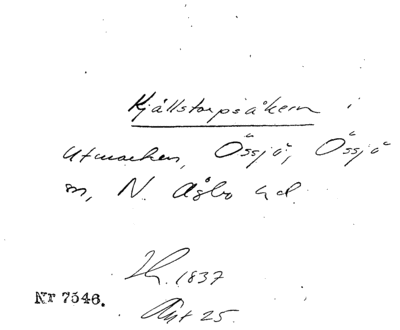 Kjällstorpsåkern
Utmarken, Össjö, Össjö
sn, N. Åsbo hd.
1837
Akt 25.
Nr 7546.